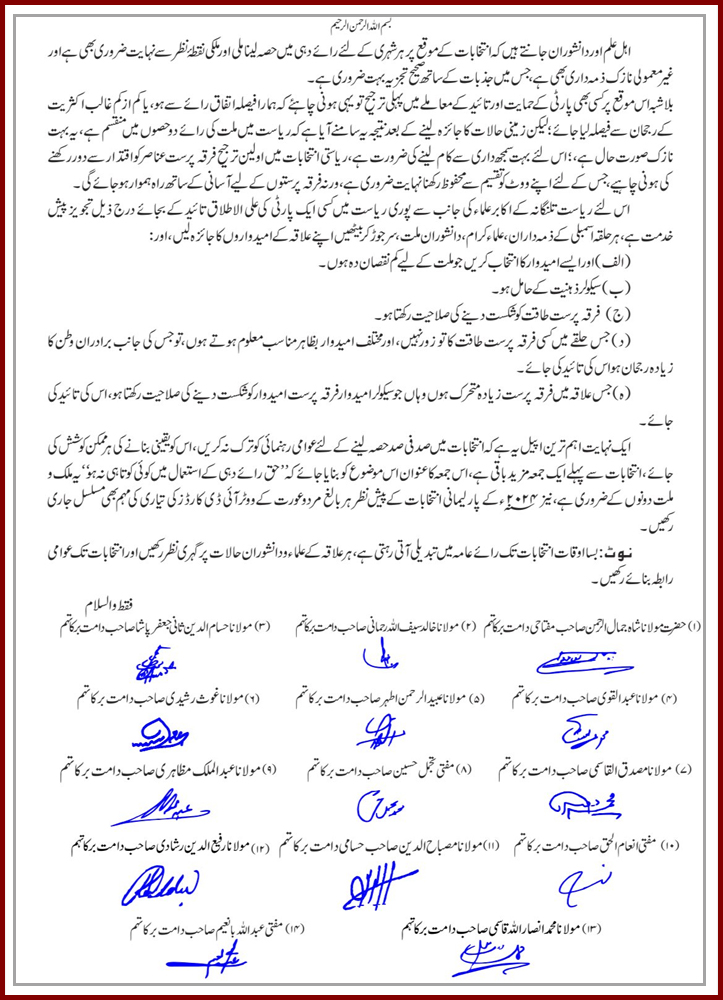 بسم اللہ الرحمن الرحیم
اہل علم اور دانشوران جانتے ہیں کہ انتخابات کے موقع پر ہر شہری کے لئے رائے دہی میں حصہ لینا ملی اور ملکی نقطۂ نظر سے نہایت ضروری بھی ہے اور
غیر معمولی نازک ذمہ داری بھی ہے، جس میں جذبات کے ساتھ صحیح تجزیہ بہت ضروری ہے۔
بلاشبہ اس موقع پر کسی بھی پارٹی کے حمایت اور تائید کے معاملے میں پہلی ترجیح تو یہی ہونی چاہئے کہ ہمارا فیصلہ اتفاق رائے سے ہو، یا کم از کم غالب اکثریت
کے رجحان سے فیصلہ لیا جائے؛ لیکن زمینی حالات کا جائزہ لینے کے بعد نتیجہ یہ سامنے آیا ہے کہ ریاست میں ملت کی رائے دو حصوں میں منقسم ہے، یہ بہت
نازک صورت حال ہے،؛ اس لئے بہت سمجھداری سے کام لینے کی ضرورت ہے، ریاستی انتخابات میں اولین ترجیح فرقہ پرست عناصر کو اقتدار سے دور رکھنے
کی ہونی چاہیے، جس کے لئے اپنے ووٹ کو تقسیم سے محفوظ رکھنا نہایت ضروری ہے، ورنہ فرقہ پرستوں کے لیے آسانی کے ساتھ راہ ہموار ہو جائے گی۔
اس لئے ریاست تلنگانہ کے اکابر علماء کی جانب سے پوری ریاست میں کسی ایک پارٹی کی علی الاطلاق تائید کے بجائے درج ذیل تجویز پیش
خدمت ہے، ہر حلقہ اسمبلی کے ذمہ داران، علماء کرام، دانشوران ملت، سر جوڑ کر بیٹھیں اپنے علاقہ کے امیدواروں کا جائزہ لیں، اور:
(الف) اور ایسے امیدوار کا انتخاب کریں جو ملت کے لیے کم نقصان دہ ہوں۔
(ب) سیکولر ذہنیت کے حامل ہو۔
(ج) فرقہ پرست طاقت کو شکست دینے کی صلاحیت رکھتا ہو۔
(د) جس حلقے میں کسی فرقہ پرست طاقت کا تو زور نہیں، اور مختلف امیدوار بظاہر مناسب معلوم ہوتے ہوں، تو جس کی جانب برادران وطن کا
زیادہ رجحان ہو اس کی تائید کی جائے۔
(ہ) جس علاقہ میں فرقہ پرست زیادہ متحرک ہوں وہاں جو سیکولر امیدوار فرقہ پرست امیدوار کو شکست دینے کی صلاحیت رکھتا ہو، اس کی تائید کی
جائے۔
ایک نہایت اہم ترین اپیل یہ ہے کہ انتخابات میں صد فی صد حصہ لینے کے لئے عوامی رہنمائی کو ترک نہ کریں، اس کو یقینی بنانے کی ہر ممکن کوشش کی
جائے، انتخابات سے پہلے ایک جمعہ مزید باقی ہے، اس جمعہ کا عنوان اس موضوع کو بنایا جائے کہ "حق رائے دہی کے استعمال میں کوئی کوتاہی نہ ہو" یہ ملک و
ملت دونوں کے ضروری ہے، نیز ۲۰۲۴ء کے پارلیمانی انتخابات کے پیش نظر ہر بالغ مرد و عورت کے ووٹر آئی ڈی کارڈز کی تیاری کی مہم بھی مسلسل جاری
رکھیں۔
نوٹ: بسا اوقات انتخابات تک رائے عامہ میں تبدیلی آتی رہتی ہے، ہر علاقہ کے علماء و دانشوران حالات پر گہری نظر رکھیں اور انتخابات تک عوامی
رابطہ بنائے رکھیں۔
فقط والسلام
(۱) حضرت مولانا شاہ جمال الرحمن صاحب مفتاحی دامت برکاتہم (۲) مولانا خالد سیف اللہ رحمانی صاحب دامت برکاتہم (۳) مولانا حسام الدین ثانی جعفر پاشا صاحب دامت برکاتہم
(۴) مولانا عبدالقوی صاحب دامت برکاتہم (۵) مولانا عبیدالرحمن اطہر صاحب دامت برکاتہم (۶) مولانا غوث رشیدی صاحب دامت برکاتہم
(۷) مولانا مصدق القاسمی صاحب دامت برکاتہم (۸) مفتی تجمل حسین صاحب دامت برکاتہم (۹) مولانا عبدالملک مظاہری صاحب دامت برکاتہم
(۱۰) مفتی انعام الحق صاحب دامت برکاتہم (۱۱) مولانا مصباح الدین صاحب حسامی دامت برکاتہم (۱۲) مولانا رفیع الدین رشادی صاحب دامت برکاتہم
(۱۳) مولانا محمد انصار اللہ قاسمی صاحب دامت برکاتہم (۱۴) مفتی عبداللہ بانعیم صاحب دامت برکاتہم